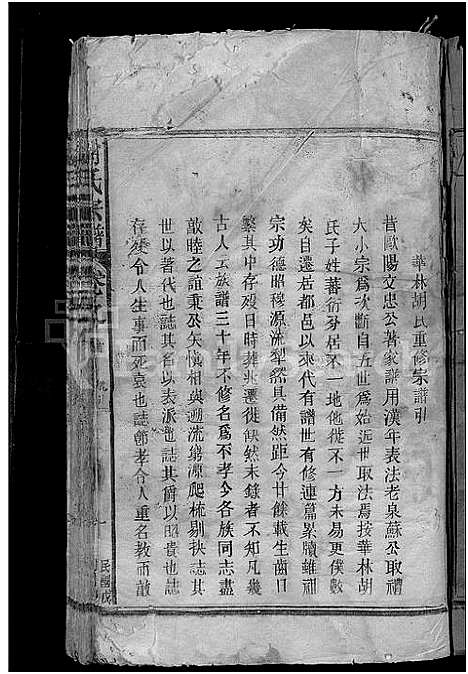 華林胡氏重修宗譜引
昔歐陽文忠公著家譜用漢年表法老泉蘇公取禮
大小宗爲次斷自五世爲始近世取法焉按華林胡
氏子姓蕃衍分居不一地他徙不一方未易更僕數
矣自遷居都邑以來代有譜世有修連篇累牘雖祖
宗功德昭穆源流犁然具備然距今廿餘載生齒日
繁其中存歿日時葬兆遷徙缺然未錄者不知凡幾
古人云族譜三十年不修名爲不孝今各族同志盡
敦睦之誼秉公矢愼相與遡流窮源爬梳剔抉志其
世以著代也誌其名以表派也誌其爵以昭貴也誌
存使令人生事而死哀也誌節孝令人重名教而敦
胡氏宗譜
卷
民國戊